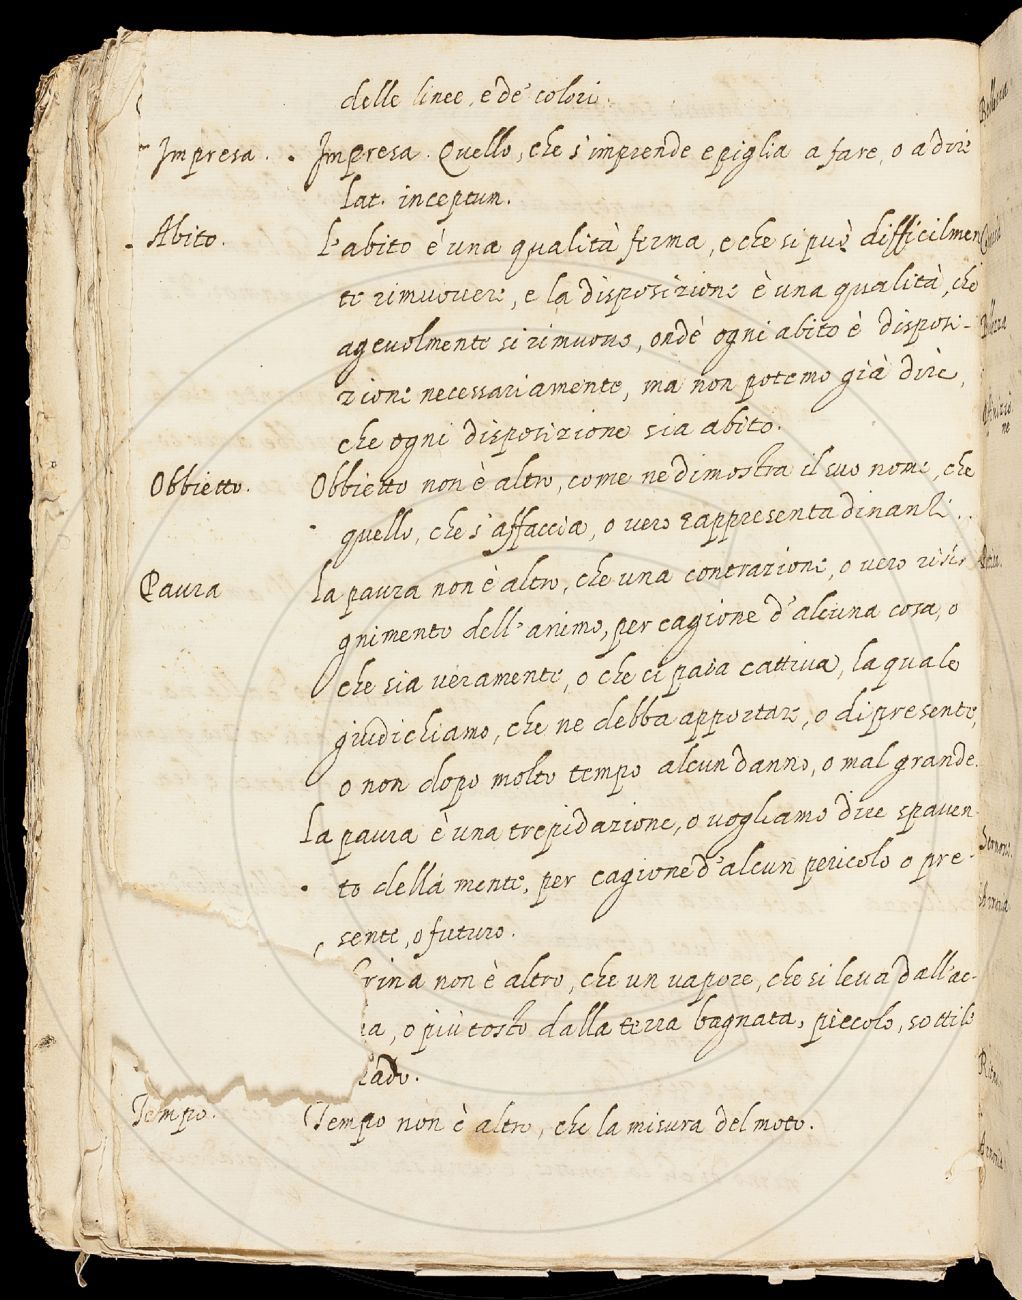 delle linee, e de' colori.
Impresa. Impresa. Quello, che s'imprende e piglia a fare, o a dire
lat. inceptum.
Abito. L'abito è una qualità ferma, e che si può difficilmen
te rimuovere, e la disposizione è una qualità, che
agevolmente si rimuove, ond'è ogni abito è disposi-
zione necessariamente, ma non potemo già dire,
che ogni disposizione sia abito.
Obbietto. Obbietto non è altro, come ne dimostra il suo nome, che
quello, che s'affaccia, o vero rappresenta dinanzi.
Paura La paura non è altro, che una contrazione, o vero ristri
gnimento dell'animo, per cagione d'alcuna cosa, o
che sia veramente, o che ci paia cattiva, la quale
giudichiamo, che ne debba apportare, o di presente,
o non dopo molto tempo alcun danno, o mal grande.
La paura è una trepidazione, o vogliamo dire spaven
to della mente, per cagione d'alcun pericolo o pre-
sente, o futuro.
rina non è altro, che un vapore, che si leva dall'ac-
a, o più tosto dalla terra bagnata, piccolo, sottile
lado.
Tempo. Tempo non è altro, che la misura del moto.